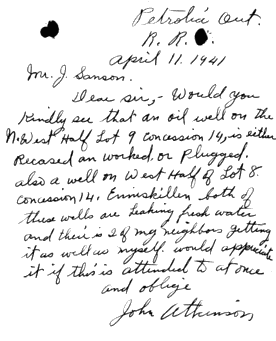 Petrolia Ont.
R. R.
April 11. 1941
Mr. J. Sanson.
Dear sir,- Would you
kindly see that an oil well on the
N. West Half Lot 9 concession 14, is either
Recased an worked, or Plugged.
also a well on West Half of Lot 8.
concession 14. Enniskillen both of
these wells are leaking fresh water
and their is 2 of my neighbors getting
it as well as myself. would appreciate
it if this is attended to at once
and oblige
John Atkinson